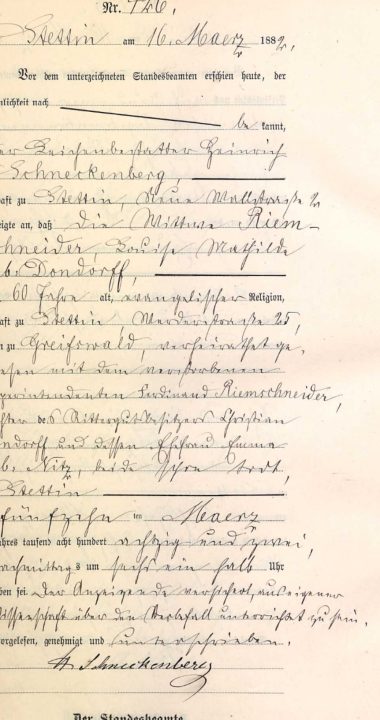 Nr. 726.
Stettin am 16. Maerz 1882.
Vor dem unterzeichneten Standesbeamten erschien heute, der
nlichkeit nach
be kannt,
er Leichenbestatter Heinrich
Schneckenberg
aft zu Stettin, Neue Wallstraße 2
eigte an, daß die Wittwe Riem-
chneider, Louise Mathilde
b. Dondorff,
60 Jahre alt, evangelischer Religion,
aft zu Stettin, Werderstraße 25,
n zu Greifswald, verheirathet ge-
esen mit dem verstorbenen
perintendenten Ferdinand Riemschneider,
chter des Rittergutsbesitzers Christian
ndorff und dessen Ehefrau Emma
b. Nitz, beide schon todt,
Stettin
fünfzehn ten Maerz
ahres tausend acht hundert achtzig und zwei,
achmittags um sechs ein halb Uhr
ben sei der Anzeigende versichert, aus eigener
Wissenschaft über den Sterbefall unterrichtet zu sein.
orgelesen, genehmigt und unterschrieben.
H Schneckenberg
Der Standesbeamte.